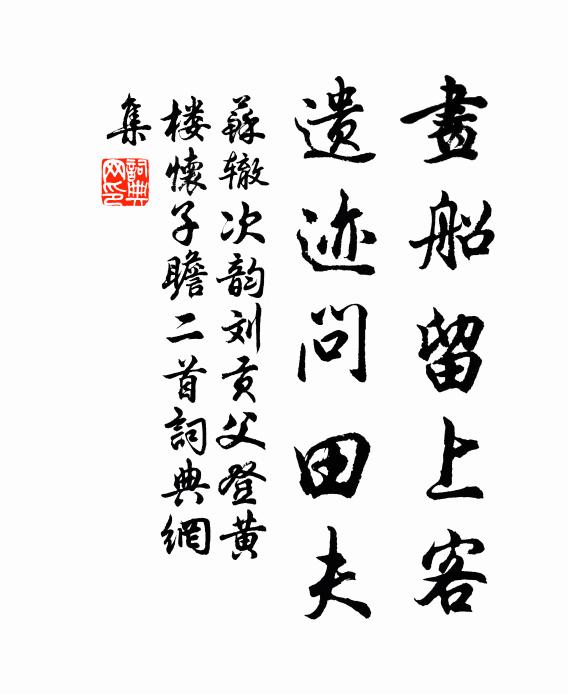 畫船留上客
遺迹問田夫
蘇辙次韵刘贡父登黄
楼懷子瞻二首詞典網
集
詞典
网印